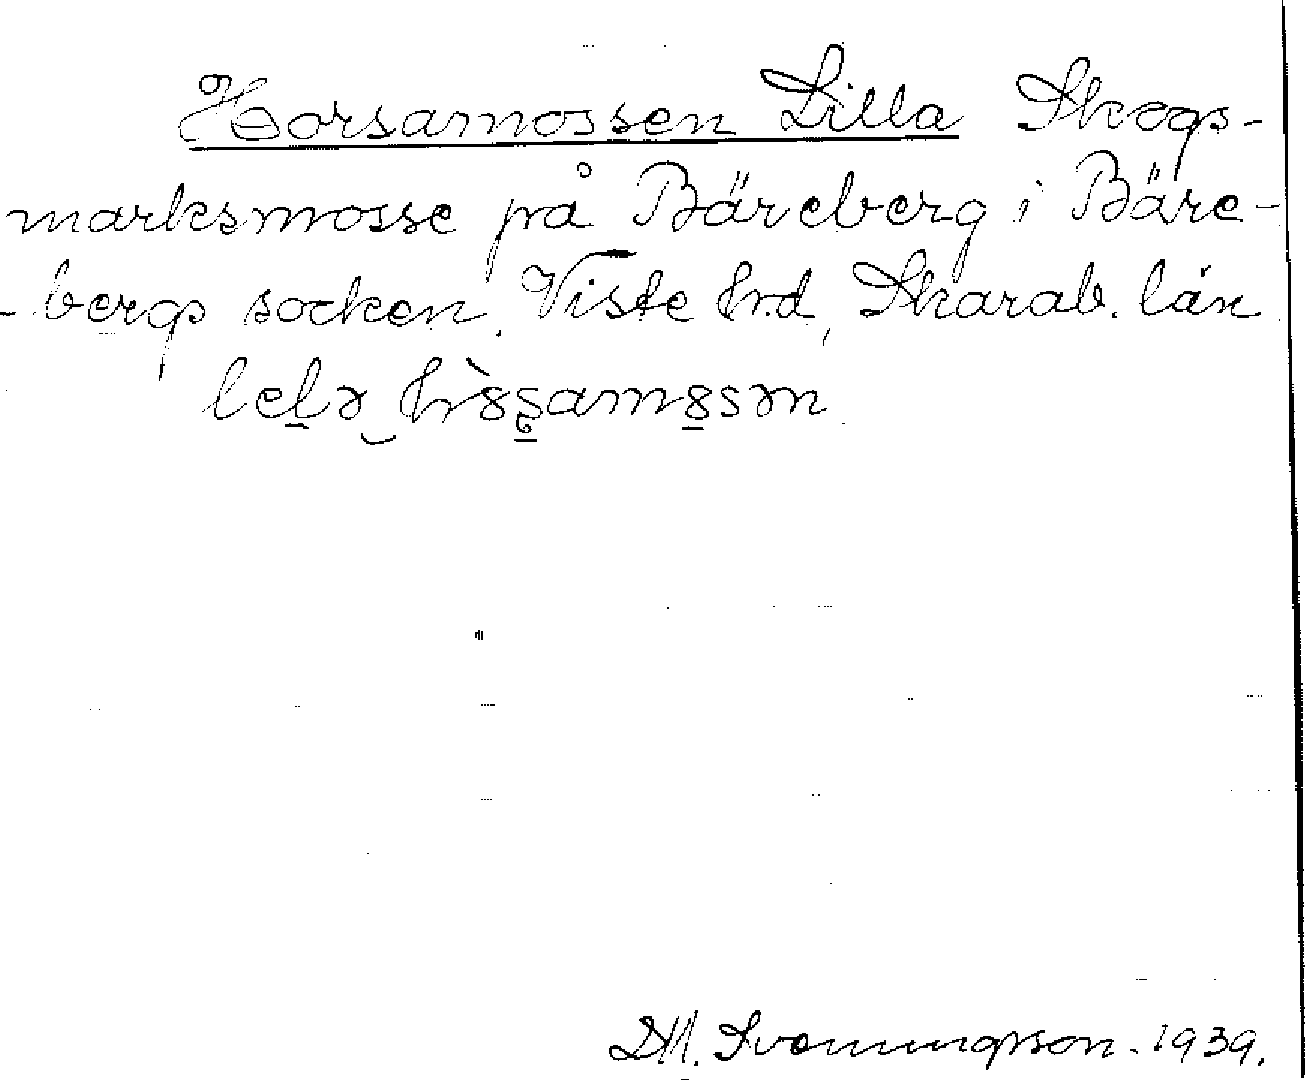 Horsamossen Lilla Skogs-
marksmosse på Bäreberg i Bäre-
-bergs socken. Viste hrd, Skarab. län
D.M. Svenningsson. 1939.